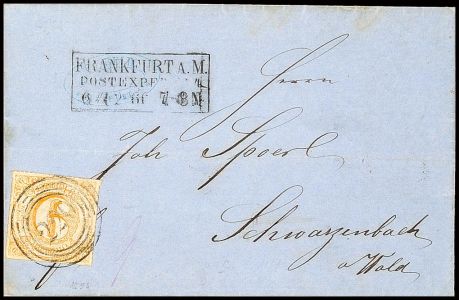 FRANKFURT A. M.
POSTEXPED
66 7-8 N
Herrn
Joh Spoerl
Schwarzenbach
a/Wald